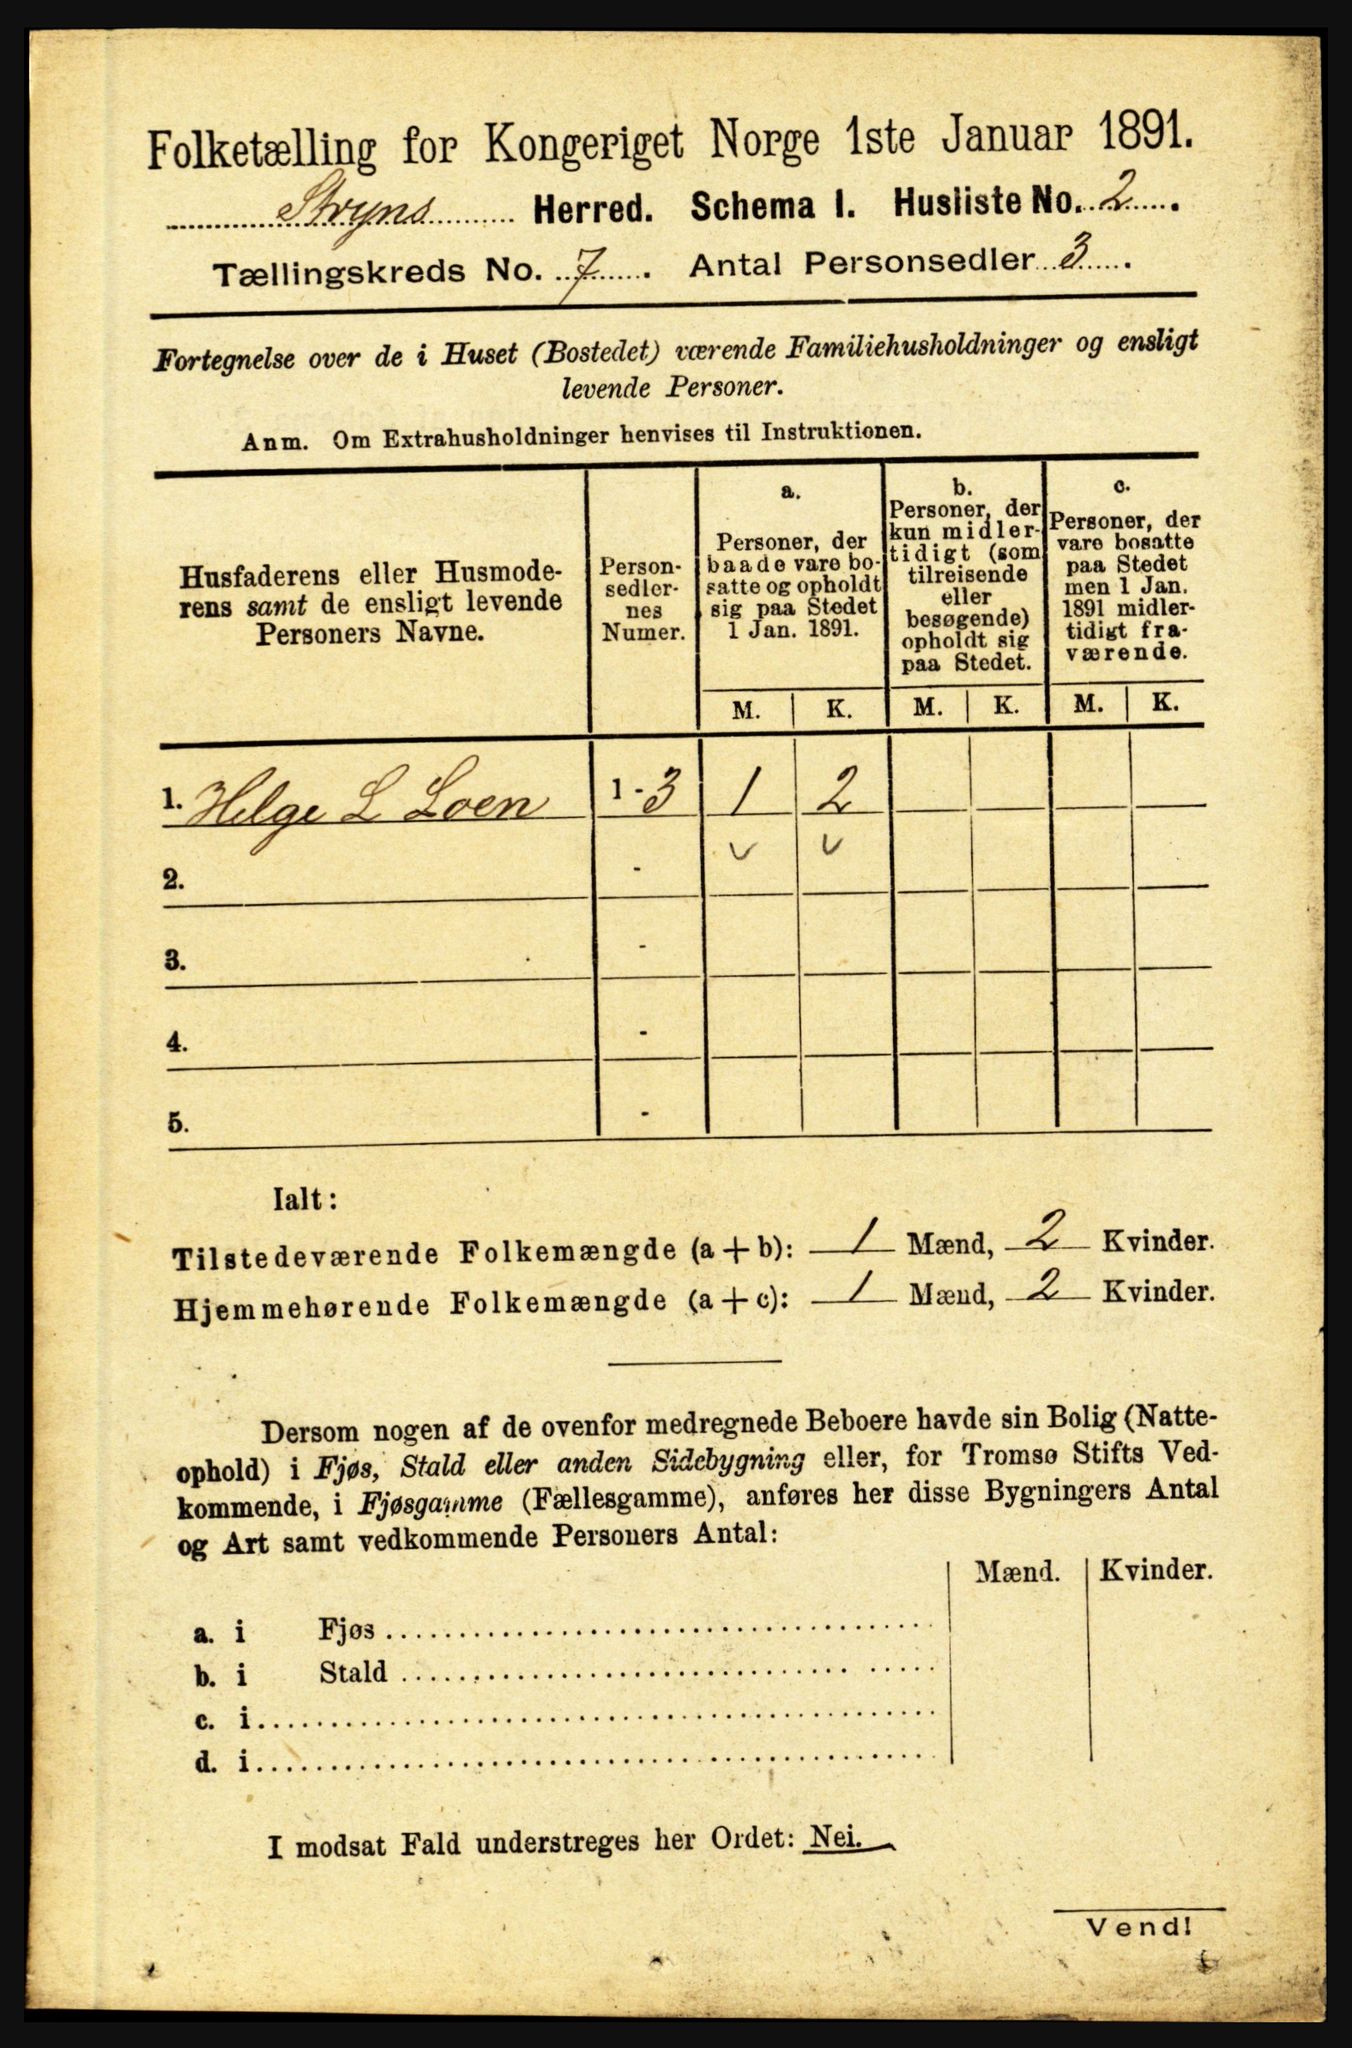 Folketælling for Kongeriget Norge 1ste Januar 1891.
Stryns Herred. Schema I. Husliste No. 2.
Tællingskreds No. 7. Antal Personsedler 3.
Fortegnelse over de i Huset (Bostedet) værende Familiehusholdninger og ensligt
levende Personer.
Anm. Om Extrahusholdninger henvises til Instruktionen.
Husfaderens eller Husmode-
rens samt de ensligt levende
Personers Navne.
Person-
sedler-
nes
Numer.
a.
Personer, der
baade vare bo-
satte og opholdt
sig paa Stedet
1 Jan. 1891.
b.
Personer, der
kun midler-
tidigt (som
tilreisende
eller
besøgende)
opholdt sig
paa Stedet.
c.
Personer, der
vare bosatte
paa Stedet
men 1 Jan.
1891 midler-
tidigt fra-
værende.
M. K. M. K. M. K.
1. Helge L Loen 1-3 1 2
2. - v v
3. -
4. -
5. -
Ialt:
Tilstedeværende Folkemængde (a + b): 1 Mænd, 2 Kvinder.
Hjemmehørende Folkemængde (a + c): 1 Mænd, 2 Kvinder.
Dersom nogen af de ovenfor medregnede Beboere havde sin Bolig (Natte-
ophold) i Fjøs, Stald eller anden Sidebygning eller, for Tromsø Stifts Ved-
kommende, i Fjøsgamme (Fællesgamme), anføres her disse Bygningers Antal
og Art samt vedkommende Personers Antal:
Mænd. Kvinder.
a. i Fjøs
b. i Stald
c. i
d. i
I modsat Fald understreges her Ordet: Nei.
Vend!